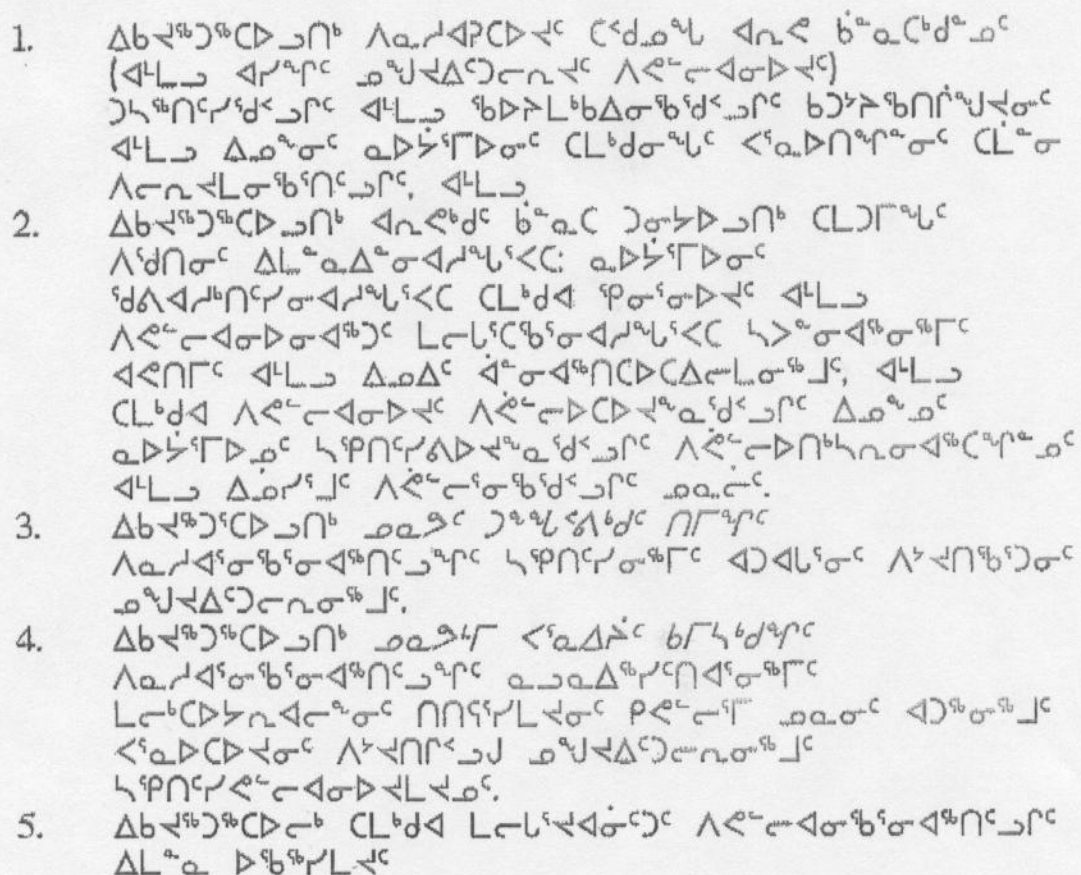 1. ᐃᑲᔪᖅᑐᖅᑕᐅᓗᑎᒃ ᐱᓇᓱᐊᕈᑕᐅᔪᑦ ᑕᑉᑯᓄᖓ ᐊᕆᕙ ᑳᓐᓇᑕᒃᑯᓐᓄᑦ
(ᐊᒻᒪᓗ ᐊᓯᖏᑦ ᓄᖑᔪᐃᑦᑐᓕᕆᔪᑦ ᐱᕙᓪᓕᐊᓂᐅᔪᑦ)
ᑐᓴᖅᑎᑦᓯᖁᑉᓗᒋᑦ ᐊᒻᒪᓗ ᖃᐅᔨᒪᒃᑲᐃᓂᖃᖁᑉᓗᒋᑦ ᑲᑐᔾᔨᖃᑎᒌᖑᔪᓂᑦ
ᐊᒻᒪᓗ ᐃᓄᖕᓂᑦ ᓇᐅᔮᕐᒥᐅᓂᑦ ᑕᒪᒃᑯᓂᖓᑦ ᐸᕐᓇᐅᑎᖏᓐᓂᑦ ᑕᒫᓐᓂ
ᐱᓕᕆᔪᒪᓂᖃᕐᑎᑦᓗᒋᑦ, ᐊᒻᒪᓗ
2. ᐃᑲᔪᖅᑐᖅᑕᐅᓗᑎᒃ ᐊᕆᕙᒃᑯᑦ ᑳᓐᓇᑕ ᑐᓂᔭᐅᓗᑎᒃ ᑕᒪᑐᒥᖓᑦ
ᐱᖁᑎᓂᑦ ᐃᒫᓐᓇᐃᓐᓂᐊᓱᖓᕐᐸᑕ: ᓇᐅᔮᕐᒥᐅᓂᑦ
ᖁᕕᐊᓱᒃᑎᑦᓯᓂᐊᓱᖓᕐᐸᑕ ᑕᒪᒃᑯᐊ ᕿᓂᕐᓂᐅᔪᑦ ᐊᒻᒪᓗ
ᐱᕙᓪᓕᐊᓂᐅᓂᐊᖅᑐᑦ ᒪᓕᒐᕐᑕᖃᕐᓂᐊᓱᖓᕐᐸᑕ ᓴᐳᓐᓂᐊᖅᓂᖅᒥᑦ
ᐊᕙᑎᒥᑦ ᐊᒻᒪᓗ ᐃᓄᐃᑦ ᐋᓐᓂᐊᖅᑎᑕᐅᑕᐃᓕᒪᓂᖅᒧᑦ, ᐊᒻᒪᓗ
ᑕᒪᒃᑯᐊ ᐱᕙᓪᓕᐊᓂᐅᔪᑦ ᐱᕚᓪᓕᐅᑕᐅᔪᓐᓇᖁᑉᓗᒋᑦ ᐃᓄᖕᓄᑦ
ᓇᐅᔮᕐᒥᐅᓄᑦ ᓴᕿᑎᑦᓯᕕᐅᔪᓐᓇᖁᑉᓗᒋᑦ ᐱᕚᓪᓕᐅᑎᒃᓴᕆᓂᐊᖅᑕᖏᓐᓄᑦ
ᐊᒻᒪᓗ ᐃᓅᓯᕐᒧᑦ ᐱᕚᓪᓕᕐᓂᖃᖁᑉᓗᒋᑦ ᓄᓇᓖᑦ.
3. ᐃᑲᔪᖅᑐᕐᑕᐅᓗᑎᒃ ᓄᓇᕗᑦ ᑐᙵᕝᕕᒃᑯᑦ ᑎᒥᖏᑦ
ᐱᓇᓱᐊᕐᓂᖃᕐᓂᐊᖅᑎᑦᓗᖏᑦ ᓴᕿᑎᑦᓯᓂᖅᒥᑦ ᐊᑐᐊᒐᕐᓂᑦ ᐱᔾᔪᑎᖃᕐᑐᓂᑦ
ᓄᖑᔪᐃᑦᑐᓕᕆᓂᖅᒧᑦ.
4. ᐃᑲᔪᖅᑐᖅᑕᐅᓗᑎᒃ ᓄᓇᕗᒻᒥ ᐸᕐᓇᐃᔩᑦ ᑲᒥᓴᒃᑯᖏᑦ
ᐱᓇᓱᐊᕐᓂᖃᕐᓂᐊᖅᑎᑦᓗᖏᑦ ᓇᓗᓇᐃᖅᓯᑦᑎᐊᕐᓂᖅᒥᑦ
ᒪᓕᒃᑕᐅᔭᕆᐊᓕᖕᓂᑦ ᑎᑎᕋᕐᓯᒪᔪᓂᑦ ᑭᕙᓪᓕᕐᒥ ᓄᓇᓂᑦ ᐊᑐᖅᓂᖅᒧᑦ
ᐸᕐᓇᐅᑕᐅᔪᓂᑦ ᐱᔾᔪᑎᒋᑉᓗᒍ ᓄᖑᔪᐃᑦᑐᓕᕆᓂᖅᒧᑦ
ᓴᕿᑎᑦᓯᕙᓪᓕᐊᓂᐅᔪᒪᔪᓄᑦ.
5. ᐃᑲᔪᖅᑐᖅᑕᐅᓕᒃ ᑕᒪᒃᑯᐊ ᒪᓕᒐᕐᔪᐊᓅᓕᑦᑐᑦ ᐱᕙᓪᓕᐊᓂᖃᕐᓂᐊᖅᑎᑦᓗᒋᑦ
ᐃᒪᓐᓇ ᐅᖃᖅᓯᒪᔪᑦ